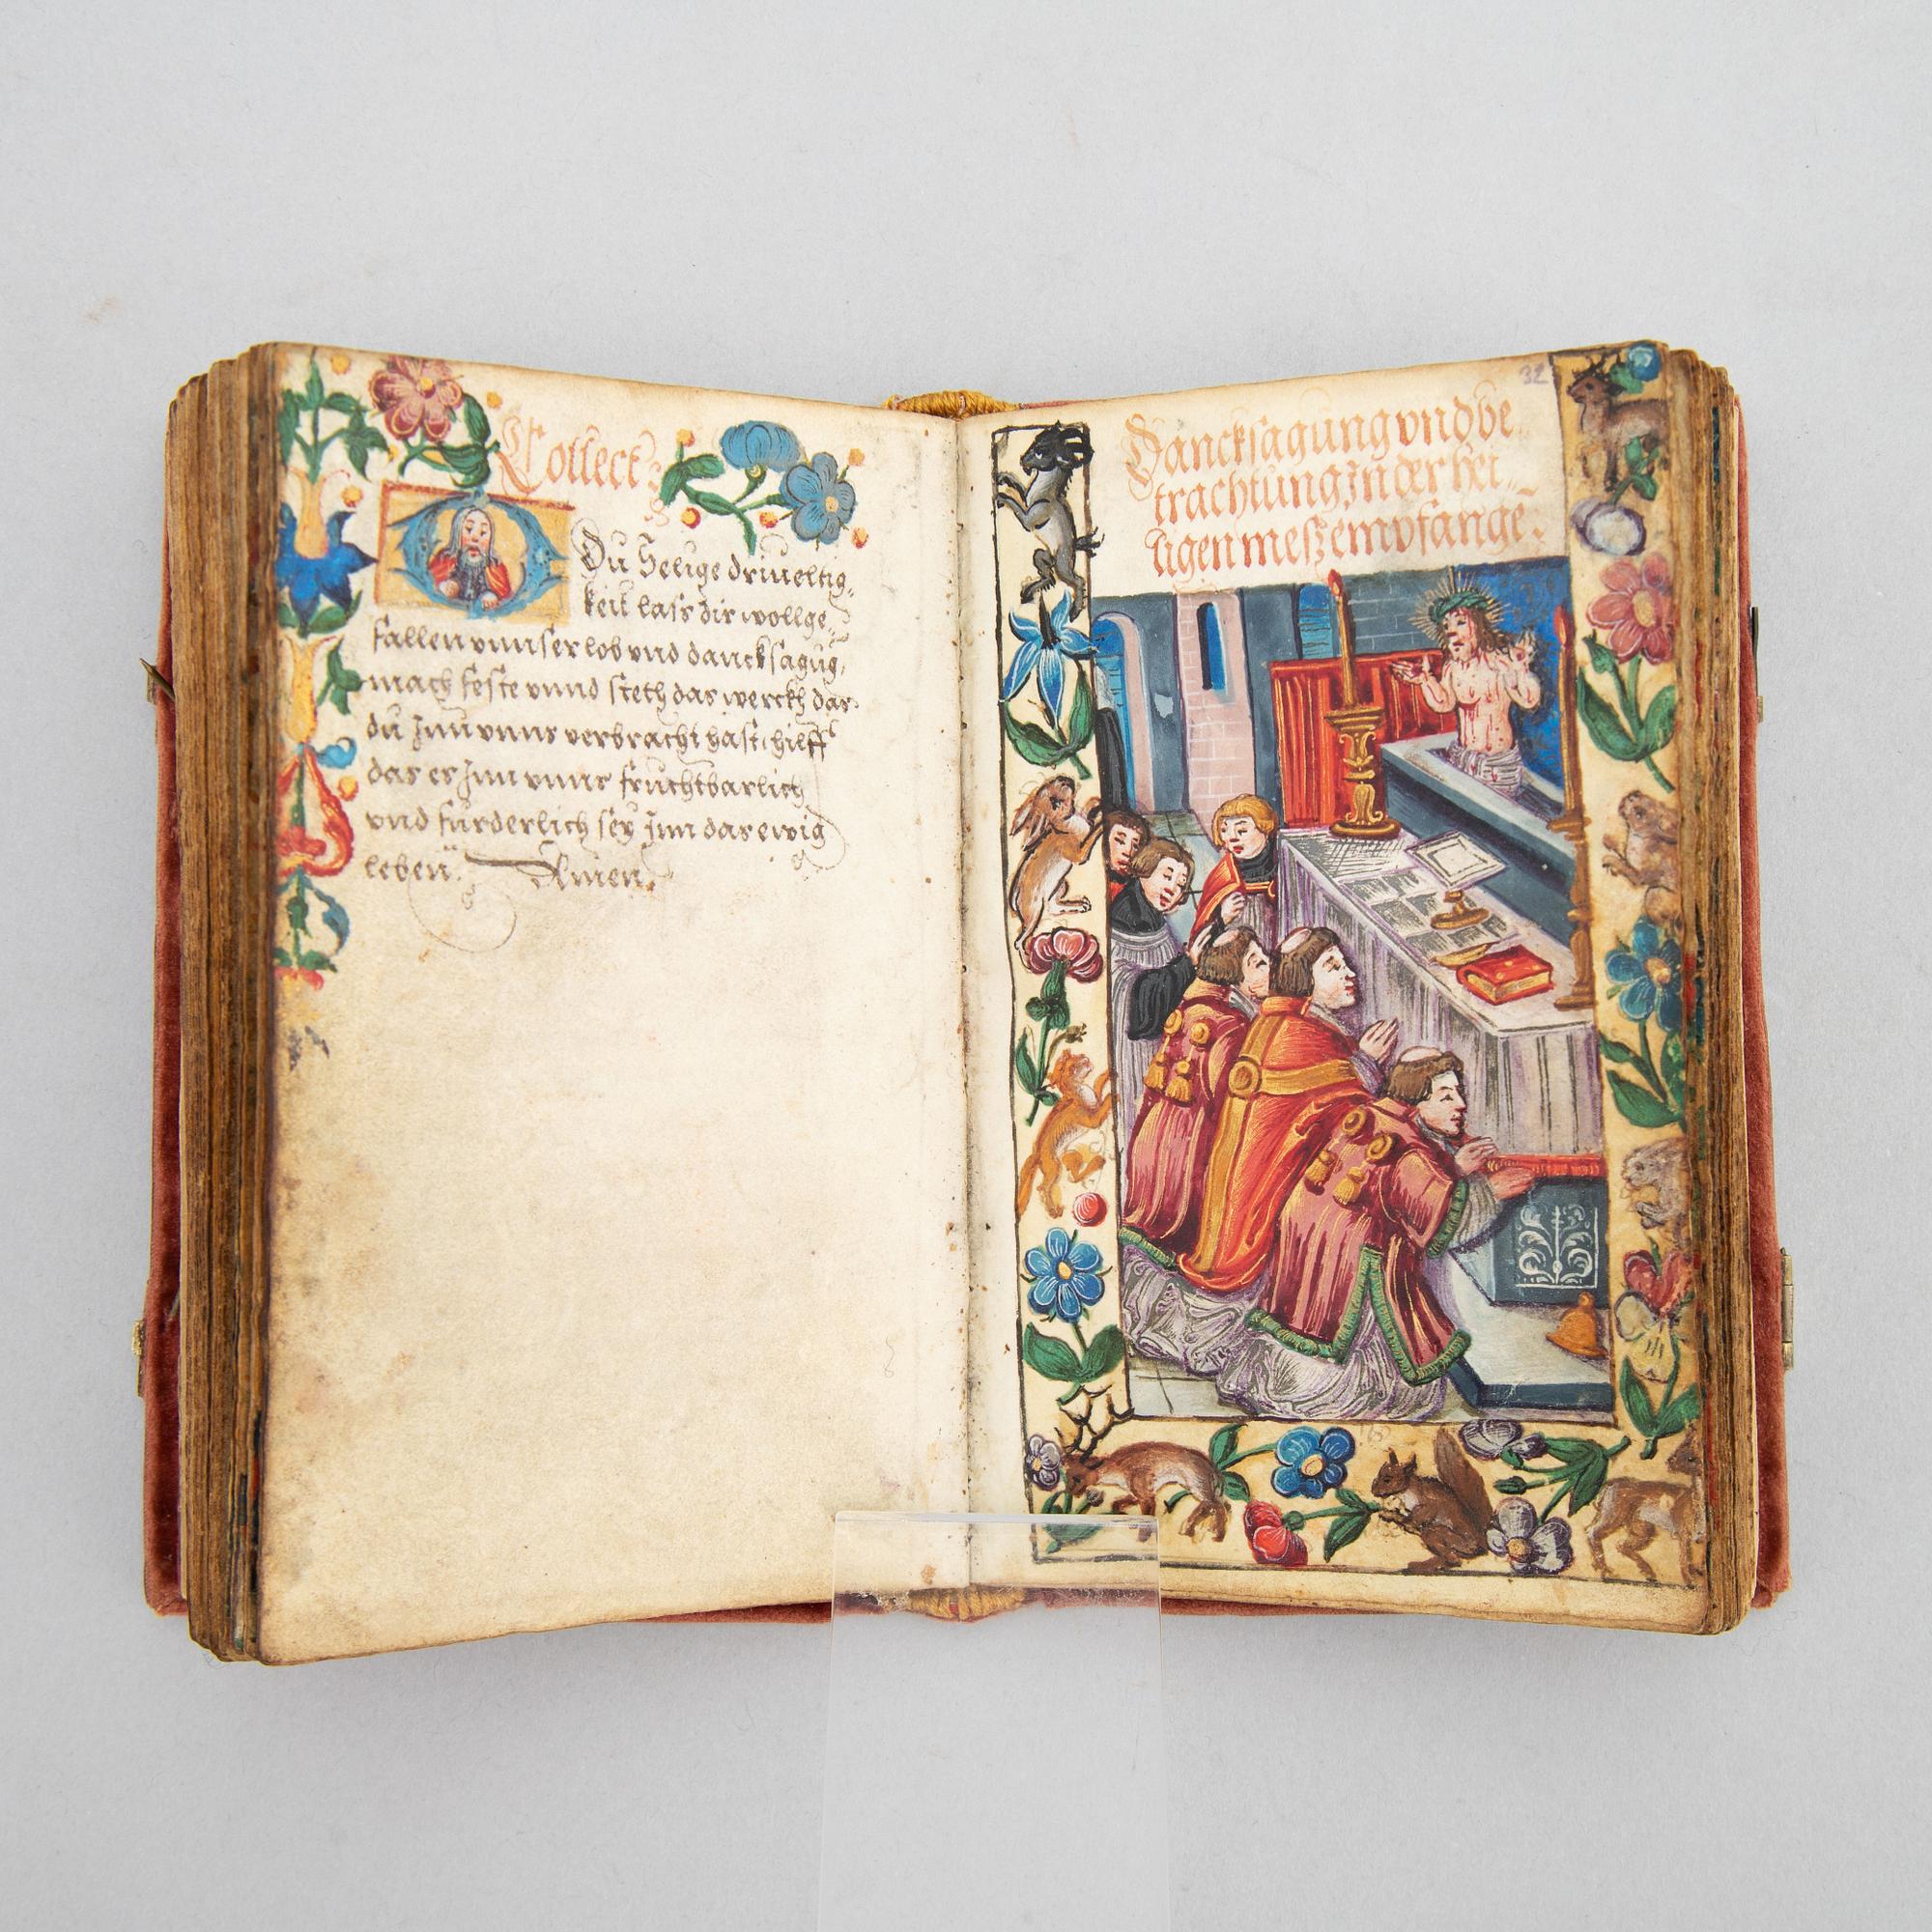 Collect:
Du Helige driueltig,
keit lass dir wollge,
fallen vnnser lob vnd dancksagūg,
mach feste vnnd steth das werckh das
dŭ Jnn vnns verbracht hast, hilff
das es Jnn vnns frŭchtbarlich
vnd fŭrderlich seÿ Jnn das ewig
leben. Amen.
32
Dancksagŭng vnd be
trachtŭng Jn der hei„
ligen mess empfange.